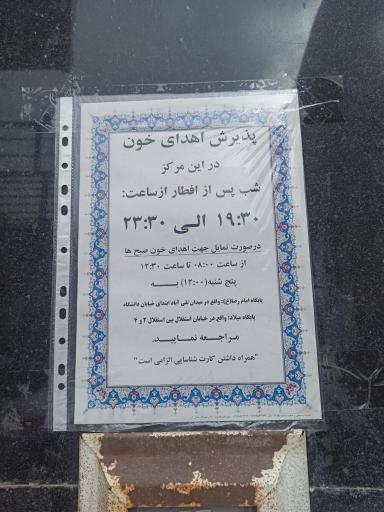 پذیرش اهدای خون
در این مرکز
شب پس از افطار ازساعت:
۱۹:۳۰ الی ۲۳:۳۰
درصورت تمایل جهت اهدای خون صبح ها
از ساعت ۰۸:۰۰ تا ساعت ۱۲:۳۰
پنج شنبه(۱۲:۰۰) به
پایگاه امام رضا(ع): واقع در میدان نقی آباد ابتدای خیابان دانشگاه
پایگاه میلاد: واقع در خیابان استقلال بین استقلال ۲ و ۴
مراجعه نمایید.
"همراه داشتن کارت شناسایی الزامی است"